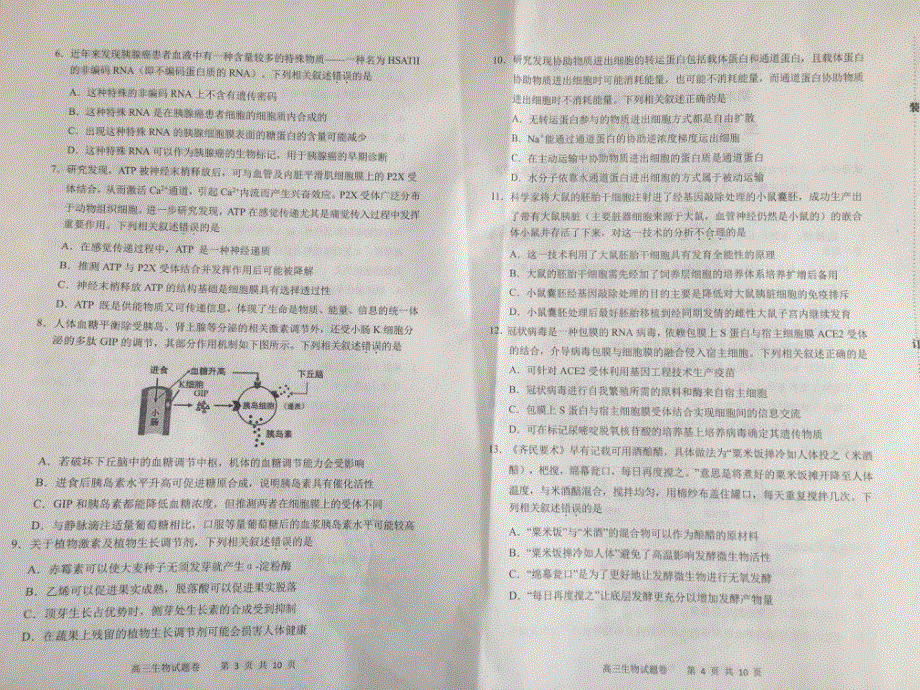 6．近年来发现胰腺癌患者血液中有一种含量较多的特殊物质——一种名为 HSATII
的非编码 RNA（即不编码蛋白质的 RNA）。下列相关叙述错误的是
A．这种特殊的非编码 RNA 上不含有遗传密码
B．这种特殊 RNA 是在胰腺癌患者细胞的细胞质内合成的
C．出现这种特殊 RNA 的胰腺细胞膜表面的糖蛋白的含量可能减少
D．这种特殊 RNA 可以作为胰腺癌的生物标记，用于胰腺癌的早期诊断
7．研究发现，ATP 被神经末梢释放后，可与血管及内脏平滑肌细胞膜上的 P2X 受
体结合，从而激活 Ca²⁺通道，引起 Ca²⁺内流而产生兴奋效应。P2X 受体广泛分布
于动物组织细胞。进一步研究发现，ATP 在感觉传递尤其是痛觉传入过程中发挥
重要作用。下列相关叙述错误的是
A．在感觉传递过程中，ATP 是一种神经递质
B．推测 ATP 与 P2X 受体结合并发挥作用后可能被降解
C．神经末梢释放 ATP 的结构基础是细胞膜具有选择透过性
D．ATP 既是供能物质又可传递信息，体现了生命是物质、能量、信息的统一体
8．人体血糖平衡除受胰岛、肾上腺等分泌的相关激素调节外，还受小肠 K 细胞分
泌的多肽 GIP 的调节，其部分作用机制如下图所示。下列相关叙述错误的是
进食
血糖升高
下丘脑
K细胞
GIP
小肠
胰岛细胞
（递质）
胰岛素
A．若破坏下丘脑中的血糖调节中枢，机体的血糖调节能力会受影响
B．进食后胰岛素水平升高可促进糖原合成，说明胰岛素具有催化活性
C．GIP 和胰岛素都能降低血糖浓度，但推测两者在细胞膜上的受体不同
D．与静脉滴注适量葡萄糖相比，口服等量葡萄糖后的血浆胰岛素水平可能较高
9．关于植物激素及植物生长调节剂，下列相关叙述错误的是
A．赤霉素可以使大麦种子无须发芽就产生 α-淀粉酶
B．乙烯可以促进果实成熟，脱落酸可以促进果实脱落
C．顶芽生长占优势时，侧芽处生长素的合成受到抑制
D．在蔬果上残留的植物生长调节剂可能会损害人体健康
高三生物试题卷 第 3 页 共 10 页
10．研究发现协助物质进出细胞的转运蛋白包括载体蛋白和通道蛋白，且载体蛋白
协助物质进出细胞时可能消耗能量，也可能不消耗能量，而通道蛋白协助物质
进出细胞时不消耗能量。下列相关叙述正确的是
A．无转运蛋白参与的物质进出细胞方式都是自由扩散
B．Na⁺能通过通道蛋白的协助逆浓度梯度运出细胞
C．在主动运输中协助物质进出细胞的蛋白质是通道蛋白
D．水分子依靠水通道蛋白进出细胞的方式属于被动运输
11．科学家将大鼠的胚胎干细胞注射进了经基因敲除处理的小鼠囊胚，成功生产出
了带有大鼠胰脏（主要脏器细胞来源于大鼠，血管神经仍然是小鼠的）的嵌合
体小鼠并存活了下来，对这一技术的分析不合理的是
A．这一技术利用了大鼠胚胎干细胞具有发育全能性的原理
B．大鼠的胚胎干细胞需先经加了饲养层细胞的培养体系培养扩增后备用
C．小鼠囊胚经基因敲除处理的目的主要是降低对大鼠胰脏细胞的免疫排斥
D．小鼠囊胚处理后最好胚胎移植到经同期发情的雌性大鼠子宫内继续发育
12．冠状病毒是一种包膜的 RNA 病毒，依赖包膜上 S 蛋白与宿主细胞膜 ACE2 受体
的结合，介导病毒包膜与细胞膜的融合侵入宿主细胞。下列相关叙述正确的是
A．可针对 ACE2 受体利用基因工程技术生产疫苗
B．冠状病毒进行自我繁殖所需的原料和酶来自宿主细胞
C．包膜上 S 蛋白与宿主细胞膜受体结合实现细胞间的信息交流
D．可在标记尿嘧啶脱氧核苷酸的培养基上培养病毒确定其遗传物质
13．《齐民要术》早有记载可用酒酿醋，具体做法为“粟米饭掸冷如人体投之（米酒
醋），杷搅，绵幕瓮口、每日再度搅之。”意思是将煮好的粟米饭摊开降至人体
温度，与米酒醋混合，搅拌均匀，用棉纱布盖住罐口，每天重复搅拌几次。下
列相关叙述错误的是
A．“粟米饭”与“米酒”的混合物可以作为酿醋的原材料
B．“粟米饭掸冷如人体”避免了高温影响发酵微生物活性
C．“绵幕瓮口”是为了更好地让发酵微生物进行无氧发酵
D．“每日再度搅之”让底层发酵更充分以增加发酵产物量
高三生物试题卷 第 4 页 共 10 页
装
订